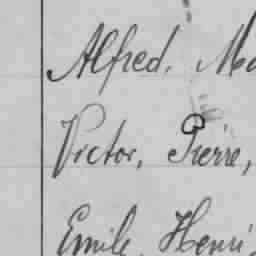 Alfred, Ma
Victor, Pierre,
Emile, Henri,